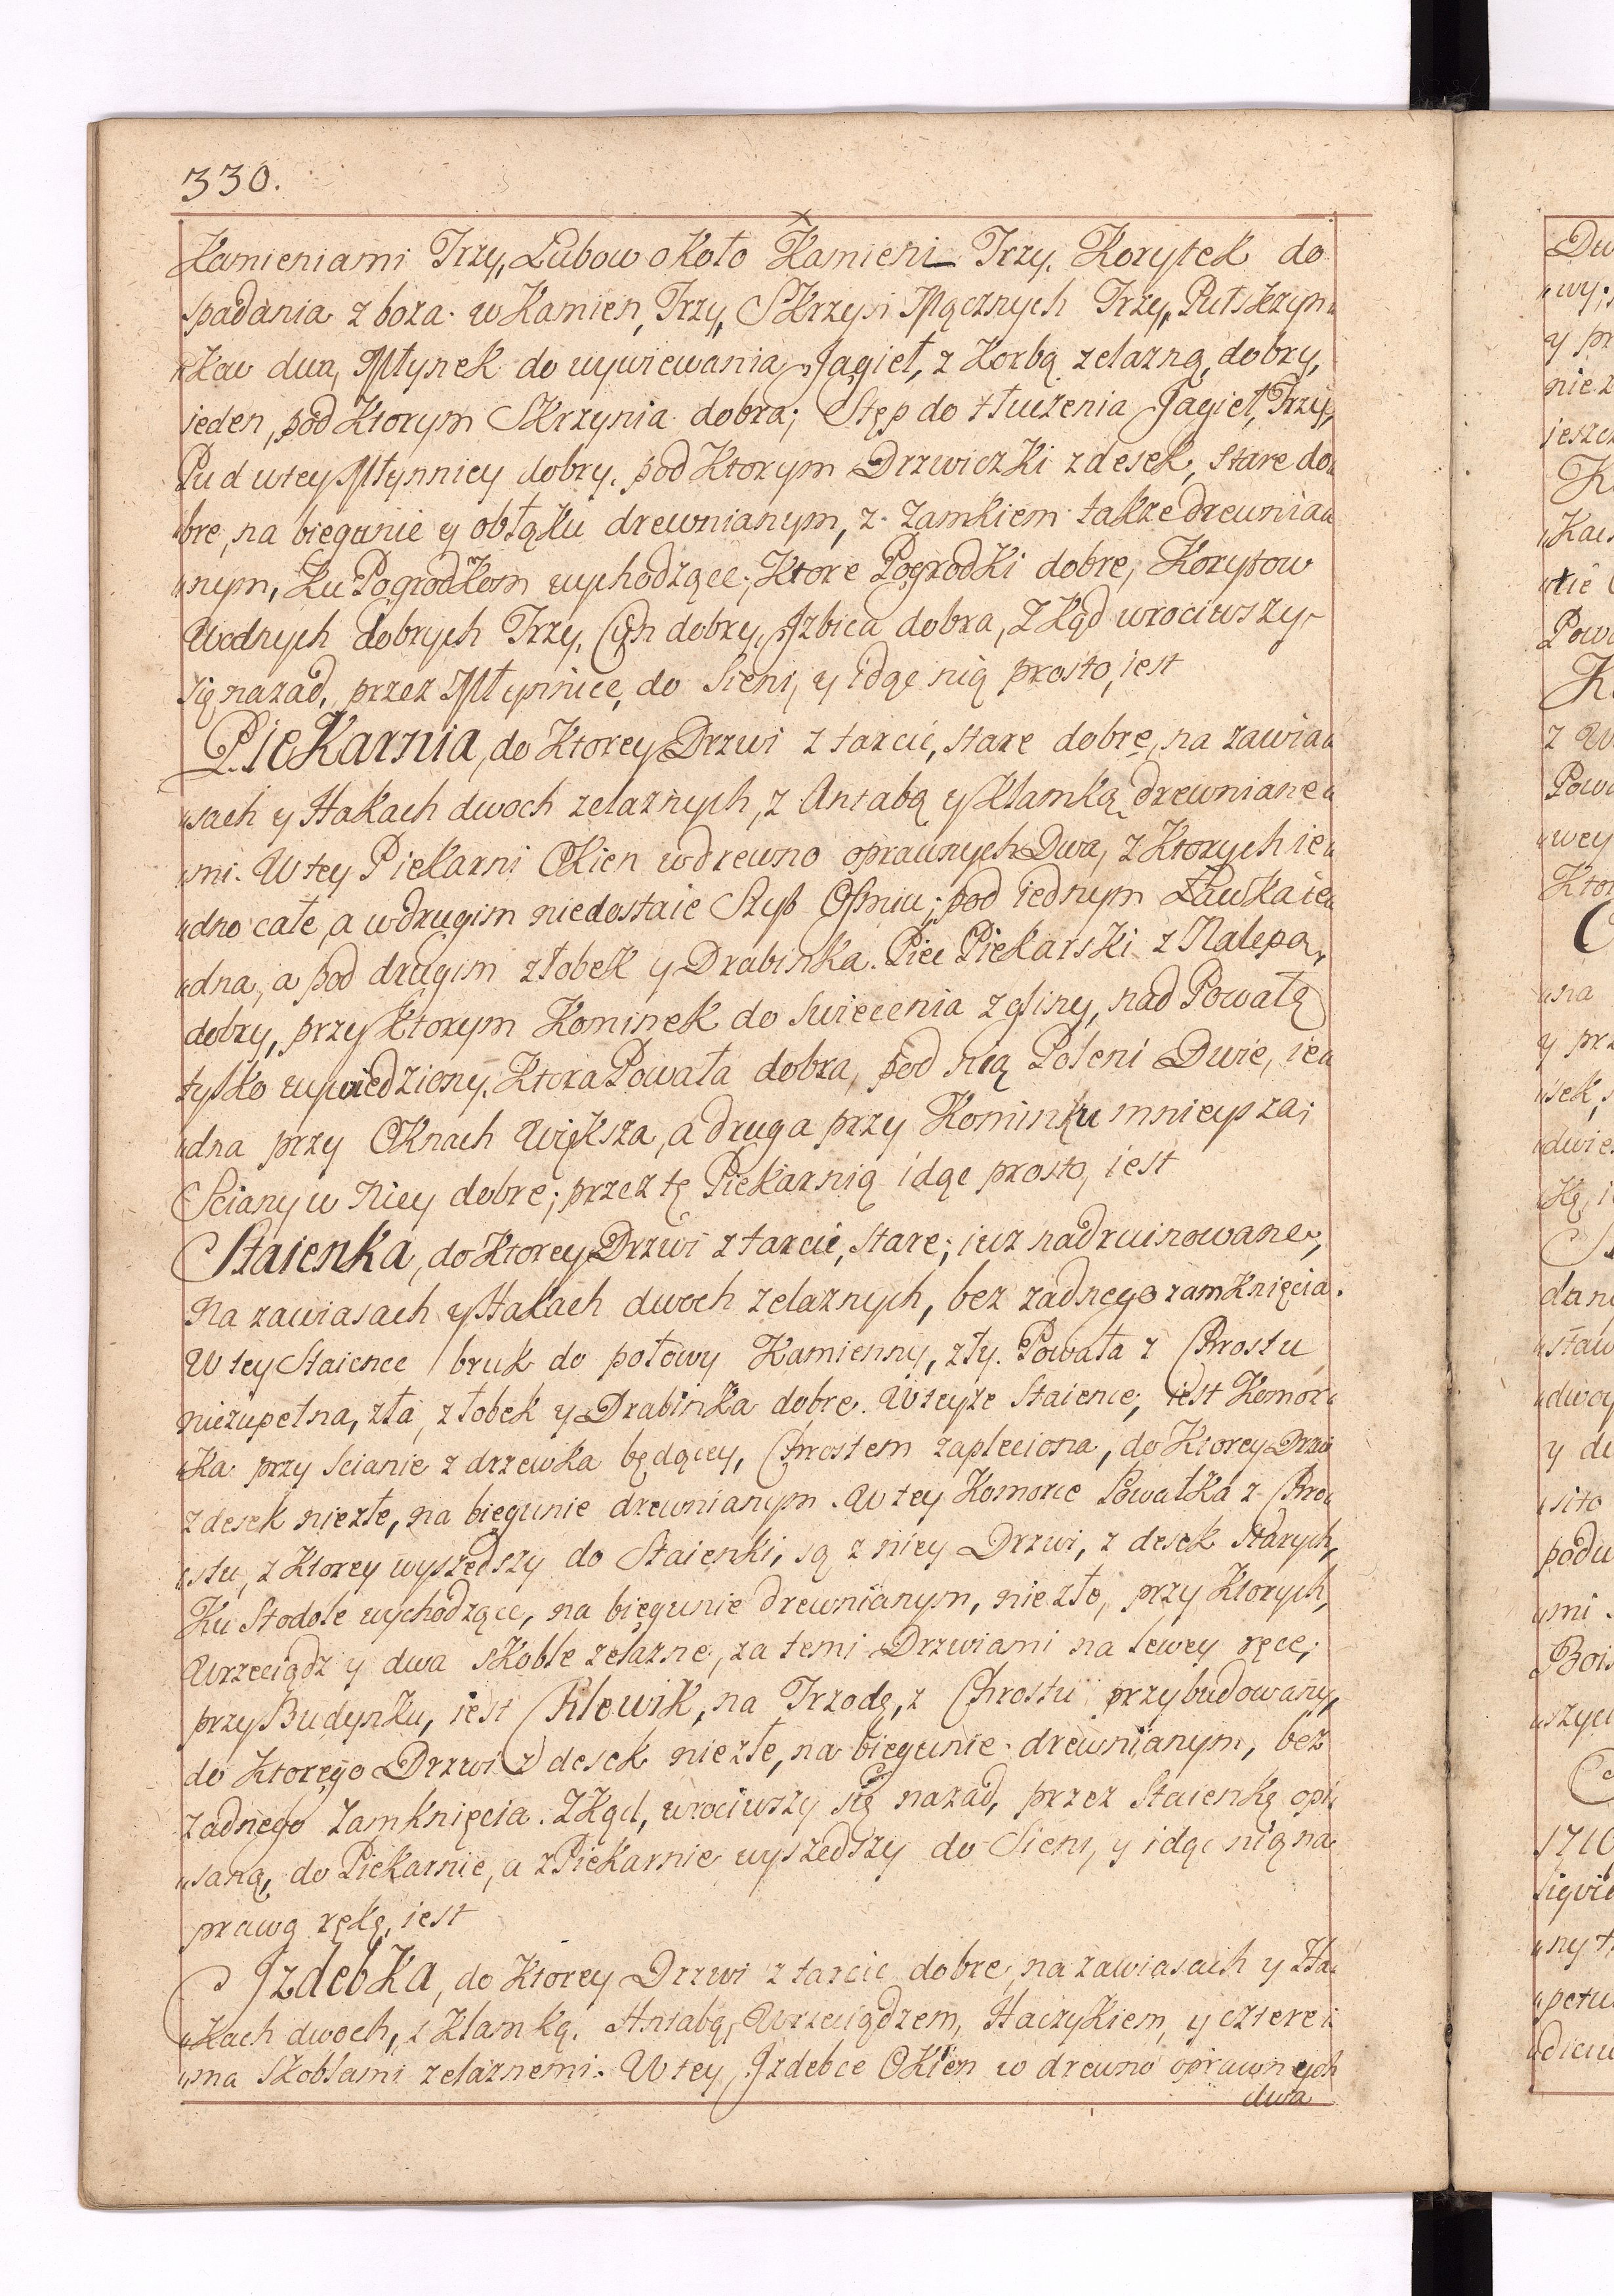 330.
Kamieniami Trzy, Lubow około Kamieni Trzy, Korytek do
spadania zboza w Kamien, Trzy, Skrzyn Mącznych Trzy, Pułskrzyn„
„kow dwa, Młynek do wywiewania Jagieł, z Korbą zelazną, dobry,
ieden, pod Ktorym Skrzynia dobra; Stęp do tłuczenia Jagieł, Trzy,
w tey Młynnicy dobry, pod Ktorym Drzwiczki z desek, stare do„
„bre, na biegunie y obłąku drewnianym, z Zamkiem takze drewnia„
„nym, Ku Pogrodkom wychodzące; Ktore Pogrodki dobre, Korytow
Wodnych dobrych Trzy, dobry, Jzbica dobra, Zkąd wrociwszy
się nazad, przez Młynnice, do Sieni, y idąc nią prosto, iest
Piekarnia, do Ktorey Drzwi z tarcic, stare dobre, na zawia„
„sach y Hakach dwoch zelaznych, z Antabą y Klamką drewniane„
„mi. W tey Piekarni Okien w drewno oprawnych Dwa, z Ktorych ie„
„dno całe, a w drugim niedostaie Szyb Ośmiu; pod iednym Ławka ie„
„dna, a pod drugim złobek y Drabinka. Piec Piekarski z Nalepą,
dobry, przy Ktorym Kominek do swiecenia z gliny, nad Powałą
tylko wywiedziony, Ktora Powała dobra, pod nią Poleni Dwie, ie„
„dna przy Oknach Większa, a druga przy Kominku mnieysza;
Sciany w niey dobre; przez tę Piekarnią idąc prosto, iest
Staienka, do Ktorey Drzwi z tarcic, stare; iuz nadruinowane,
Na zawiasach y Hakach dwoch zelaznych, bez zadnego zamknięcia.
W tey Staience bruk do połowy Kamienny, zły. Powała z Chrostu
niezupełna, zła, złobek y Drabinka dobre. W teyze Staience, iest Komor„
„ka przy scianie z drzewka będącey, Chrostem zapleciona, do Ktorey Drzwi
z desek niezłe, na biegunie drewnianym. W tey Komorce Powałka z Chro„
„stu, z Ktorey wyszedszy do Staienki, są z niey Drzwi, z desek Starych,
Ku Stodole wychodzące, na biegunie drewnianym, niezłe, przy Ktorych,
Wrzeciądz y dwa skoble zelazne, za temi Drzwiami na lewey ręce,
przy Budynku, iest Chlewik, na Trzodę, z Chrostu przybudowany,
do Ktorego Drzwi z desek niezłe, na biegunie drewnianym, bez
zadnego Zamknięcia. Zkąd, wrociwszy się nazad, przez Staienkę opi„
„saną, do Piekarnie, a z Piekarnie wyszedszy do Sieni, y idąc nią na
prawą rękę, iest
Jzdebka, do Ktorey Drzwi z tarcic dobre, na zawiasach y Ha„
„kach dwoch, z Klamką, Antabą, Wrzeciądzem, Haczykiem, y cztere„
„ma Skoblami zelaznemi. W tey Jzdebce Okien w drewno oprawnych
dwa